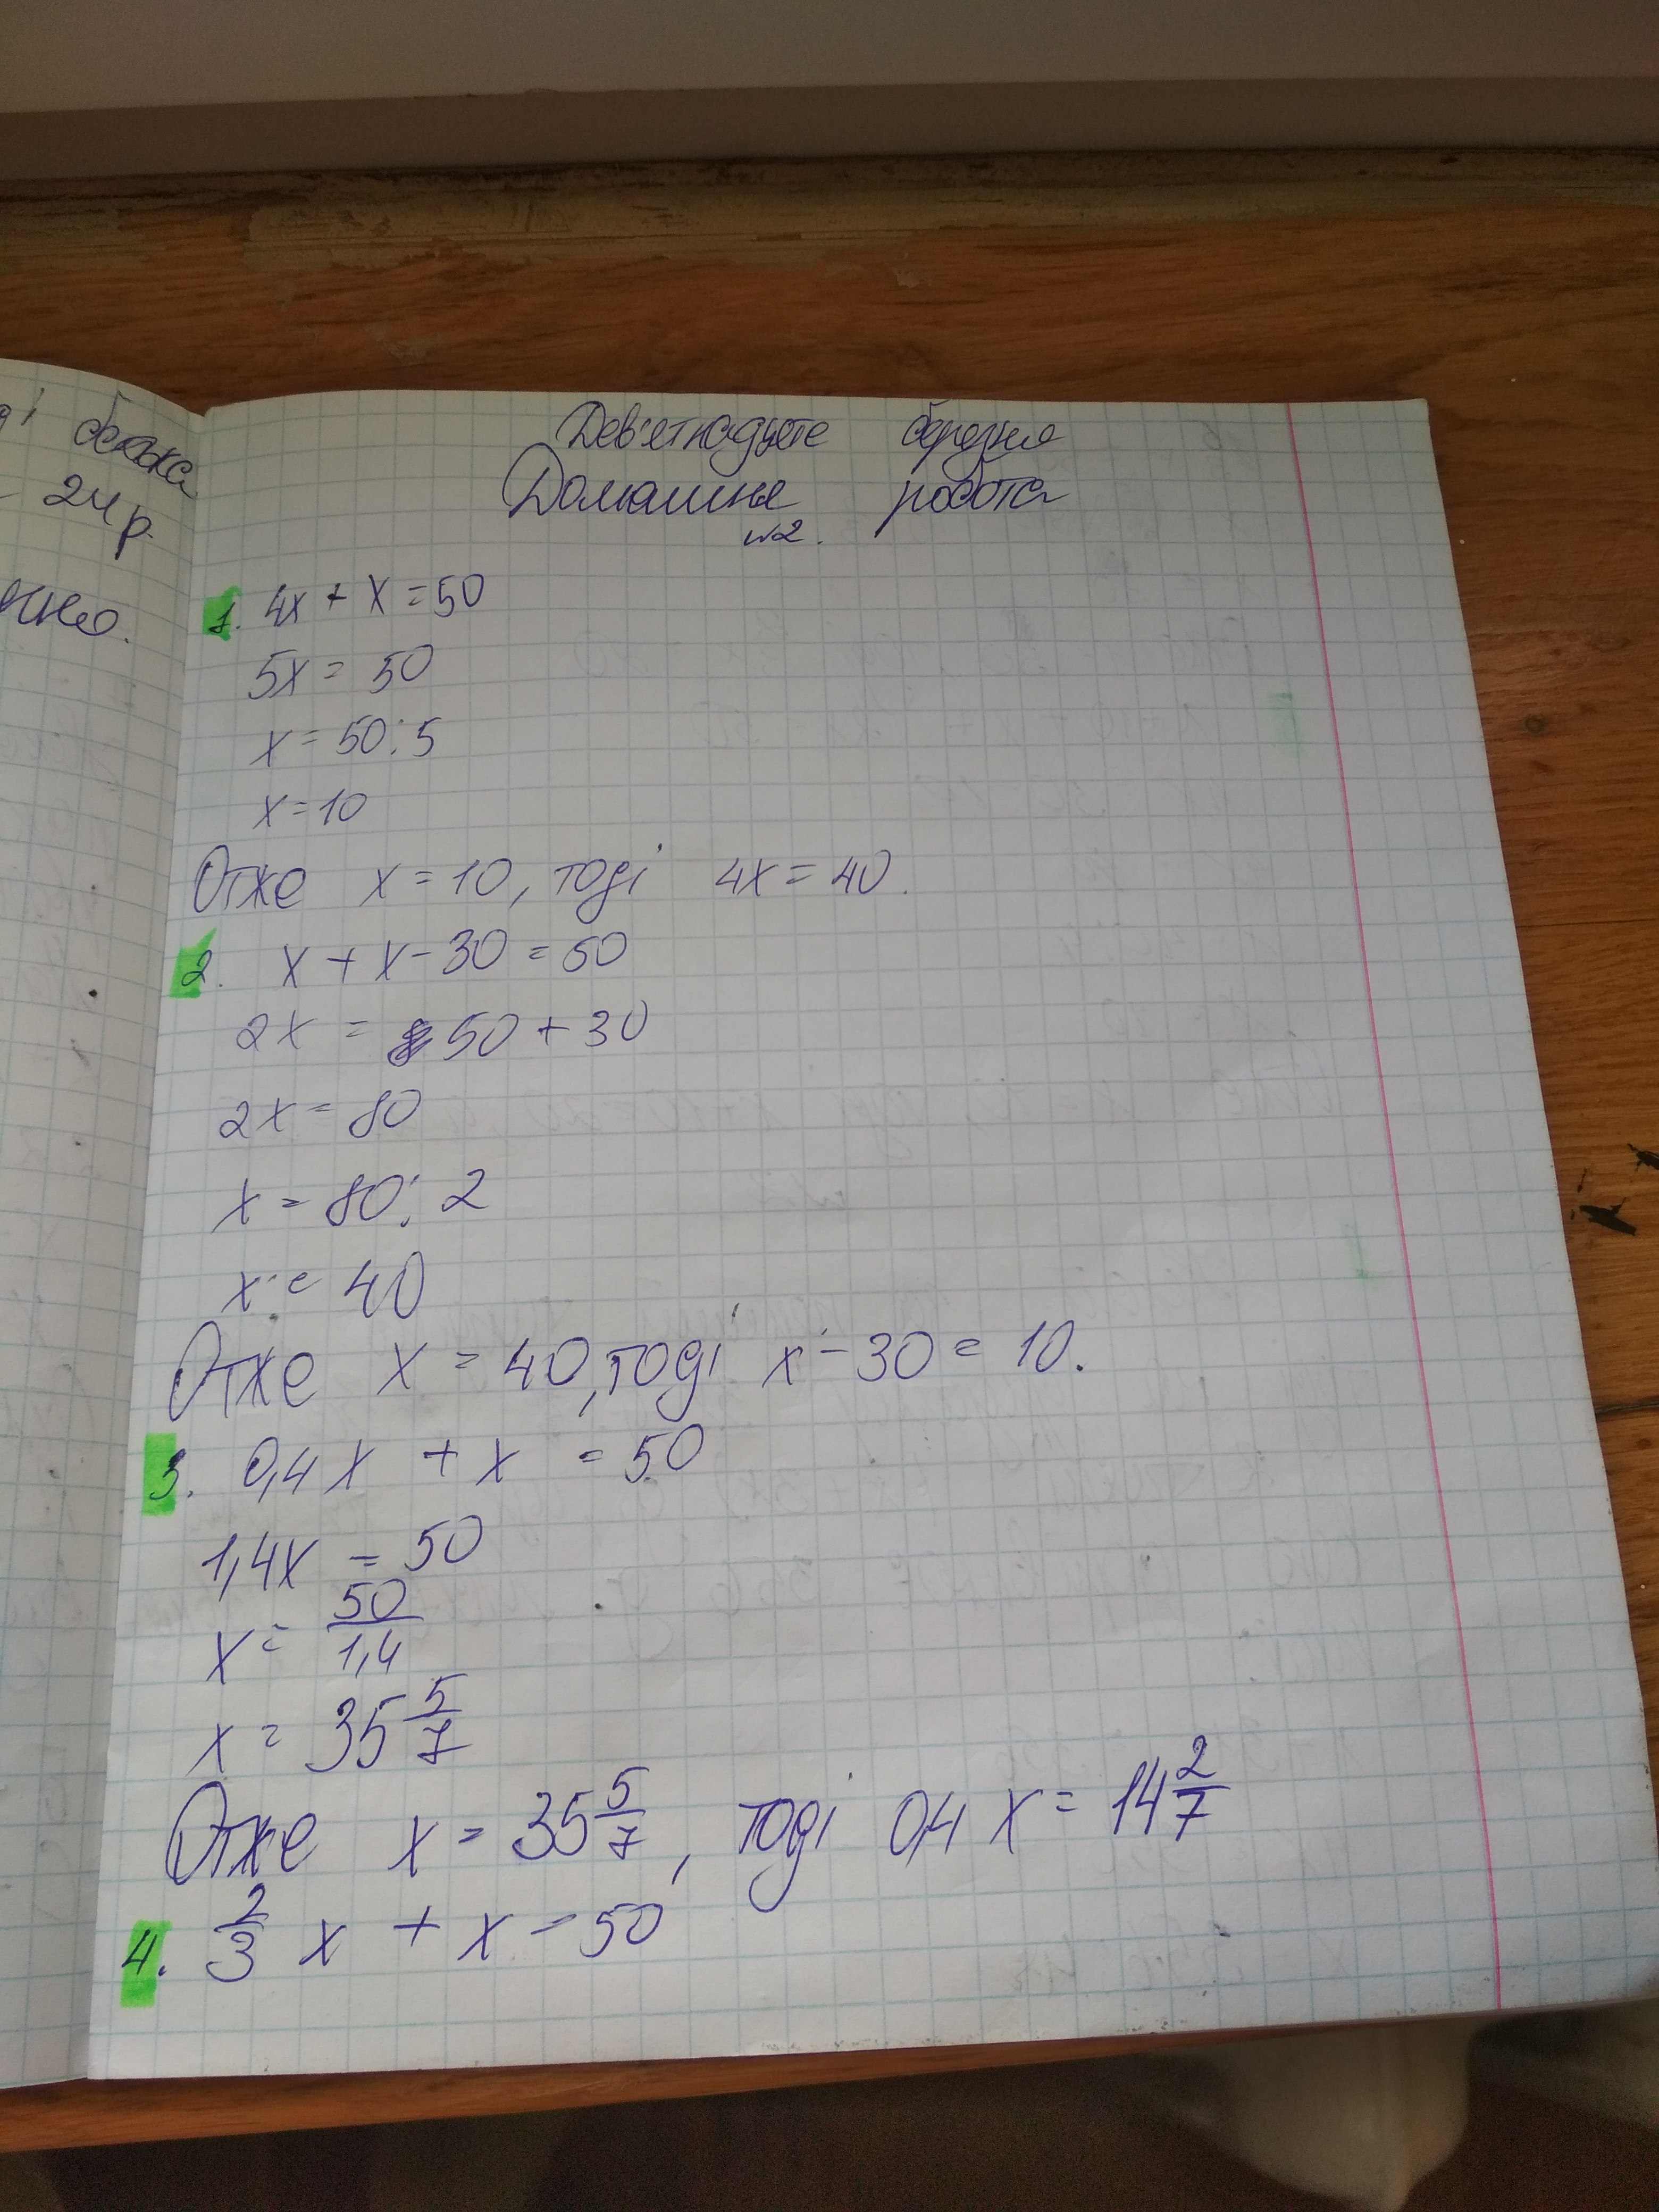 24 р.
Дев'ятнадцяте березня
Домашня робота
№2.
1. 4x + x = 50
5x = 50
x = 50 : 5
x = 10
Отже x = 10, тоді 4x = 40.
2. x + x - 30 = 50
2x = 50 + 30
2x = 80
x = 80 : 2
x = 40
Отже x = 40, тоді x - 30 = 10.
3. 0,4x + x = 50
1,4x = 50
x = 50/1,4
x = 35 5/7
Отже x = 35 5/7, тоді 0,4x = 14 2/7
4. 2/3 x + x = 50